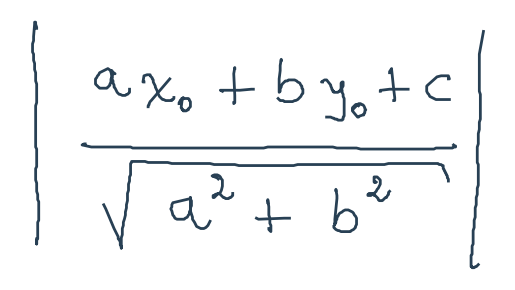 $$\left| \frac{ax_0 + by_0 + c}{\sqrt{a^2 + b^2}} \right|$$